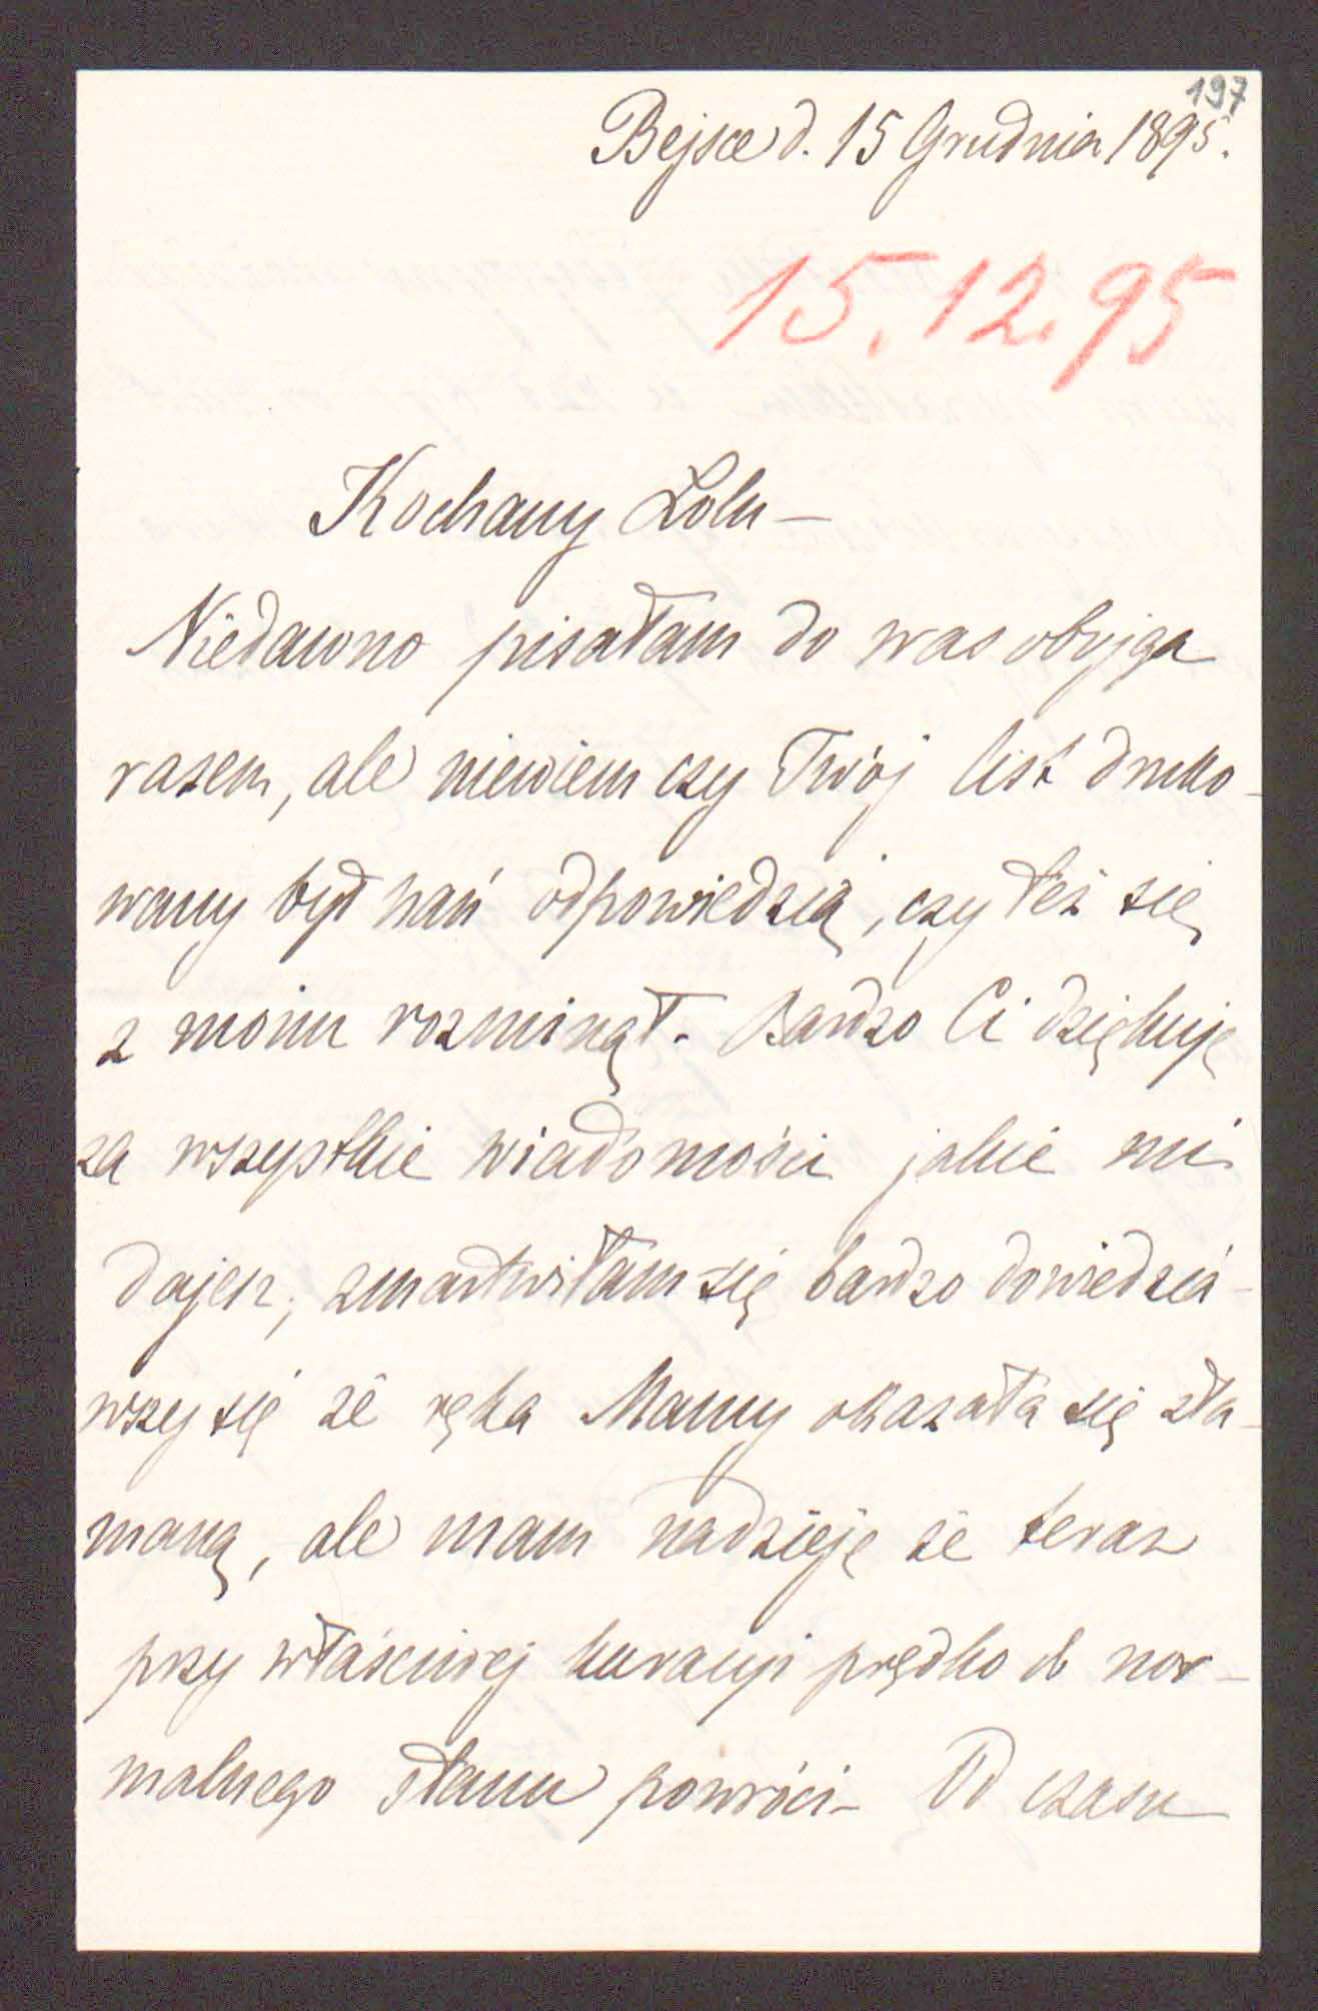 197
Bejsce d. 15 Grudnia 1895.
15.12.95
Kochany Lolu –
Niedawno pisałam do was obojga
razem, ale niewiem czy Twój list druko-
wany był nań odpowiedzią, czy też się
z moim rozminął. Bardzo Ci dziękuję
za wszystkie wiadomości jakie mi
dajesz, zmartwiłam się bardzo dowiedzia-
wszy się że ręka Mamy okazała się zła-
maną, ale mam nadzieję że teraz
przy właściwej kuracyi prędko do nor-
malnego stanu powróci – Od czasu